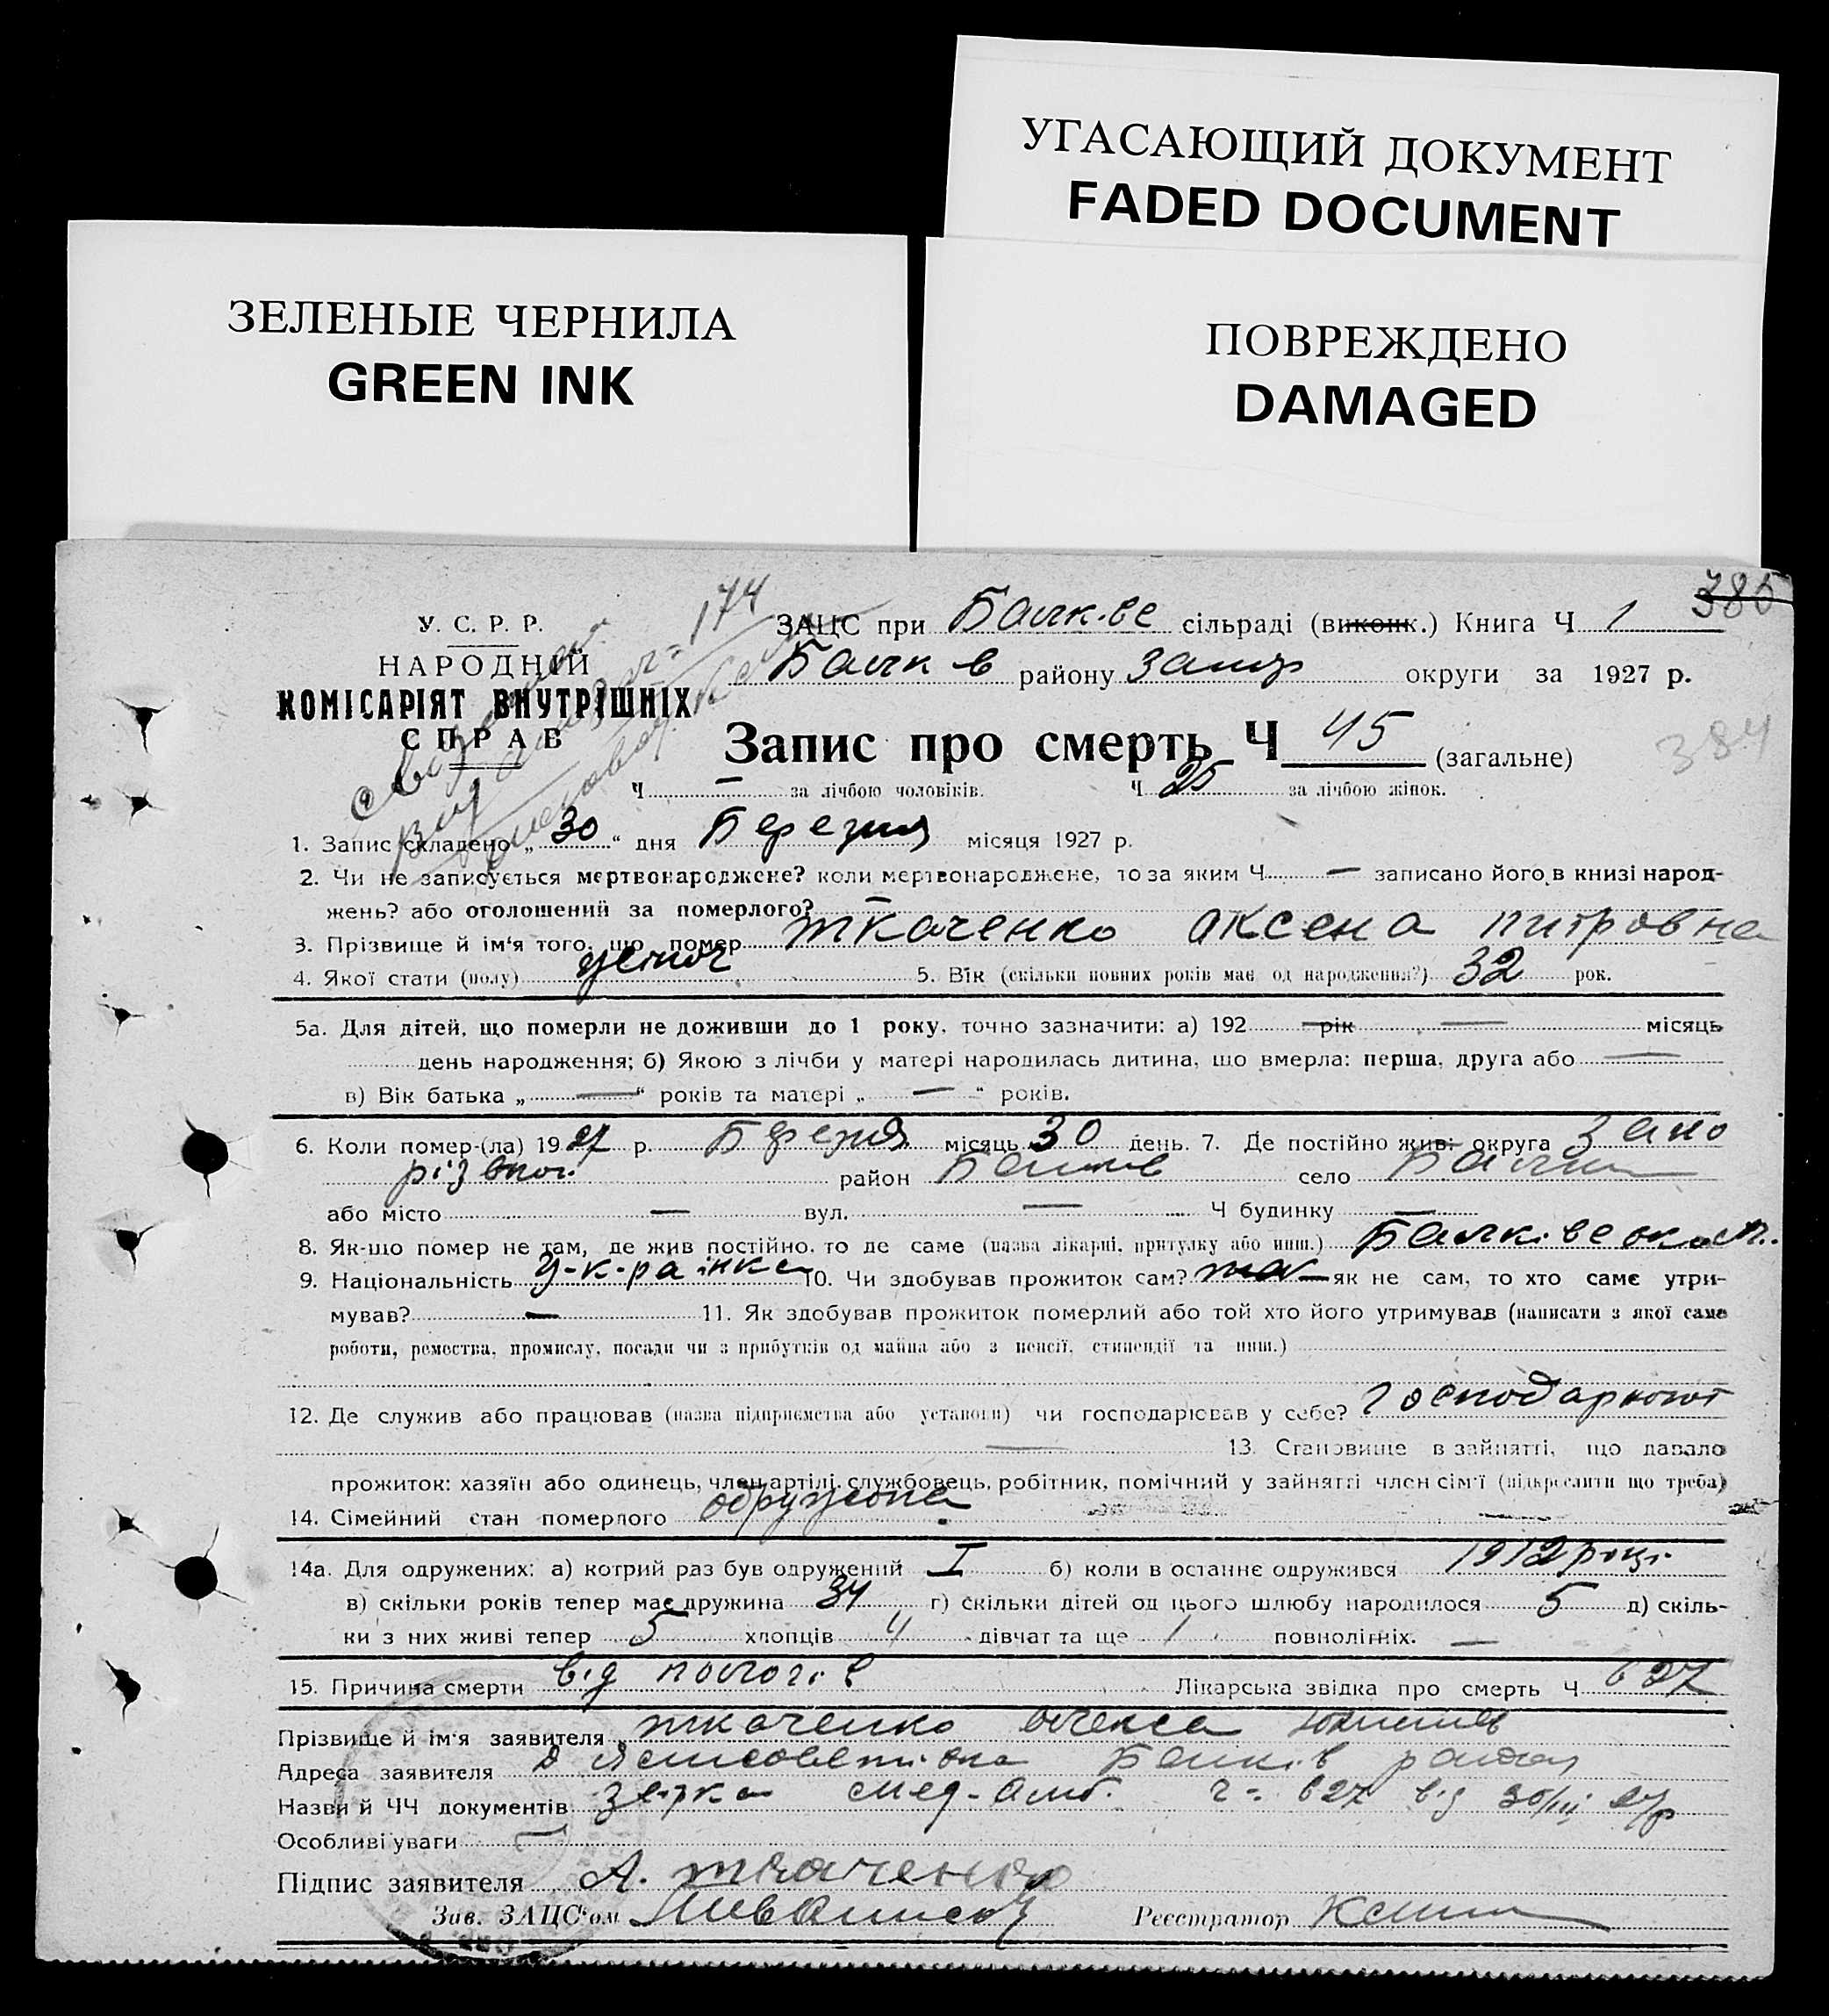 УГАСАЮЩИЙ ДОКУМЕНТ
FADED DOCUMENT
ЗЕЛЕНЫЕ ЧЕРНИЛА
GREEN INK
ПОВРЕЖДЕНО
DAMAGED
385
У. С. Р. Р.
НАРОДНІЙ
КОМІСАРІЯТ ВНУТРІШНІХ
СПРАВ
174
ЗАЦС при Балк-ве сільраді (виконк.) Книга Ч 1
Балк в району Запор округи за 1927 р.
Запис про смерть Ч 45 (загальне)
384
Ч — за лічбою чоловіків. Ч 25 за лічбою жінок.
1. Запис складено „30“ дня Березня місяця 1927 р.
2. Чи не записується мертвонароджене? коли мертвонароджене, то за яким Ч — записано його в книзі народ-
жень? або оголошений за померлого? —
3. Прізвище й ім'я того, що помер Ткаченко Оксена Питровна
4. Якої стати (полу) жіноч 5. Вік (скільки повних років має од народження?) 32 рок.
5а. Для дітей, що померли не доживши до 1 року, точно зазначити: а) 192 рік — місяць
день народження; б) Якою з лічби у матері народилась дитина, що вмерла: перша, друга або —
в) Вік батька „—“ років та матері „—“ років.
6. Коли помер-(ла) 1927 р. Березня місяць 30 день. 7. Де постійно жив: округа Запо
різької район Балків село Балки
або місто — вул. — Ч будинку —
8. Як-що помер не там, де жив постійно, то де саме (назва лікарні, притулку або инш.) Балківе
9. Національність У-к-раінка 10. Чи здобував прожиток сам? так як не сам, то хто саме утри-
мував? — 11. Як здобував прожиток померлий або той хто його утримував (написати з якої саме
роботи, ремества, промислу, посади чи з прибутків од майна або з пенсії, стипендії та инш.)
12. Де служив або працював (назва підприємства або установи) чи господарював у себе? Господарюют
— 13. Становище в зайнятті, що давало
прожиток: хазяїн або одинець, член артілі, службовець, робітник, помічний у зайнятті член сім'ї (підкреслити що треба)
14. Сімейний стан померлого одружона
14а. Для одружених: а) котрий раз був одружений I б) коли в останнє одружився 1912 році
в) скільки років тепер має дружина 34 г) скільки дітей од цього шлюбу народилося 5 д) скіль-
ки з них живі тепер 5 хлопців 4 дівчат та ще 1 повнолітніх. —
15. Причина смерти Від пологів Лікарська звідка про смерть Ч 627
Прізвище й ім'я заявителя Ткаченко Олекса
Адреса заявителя Балків район
Назви й ЧЧ документів мед-амб. ч= 627 від 30/III 27р
Особливі уваги
Підпис заявителя А. Ткаченко
Зав. ЗАЦС'ом
Реєстратор